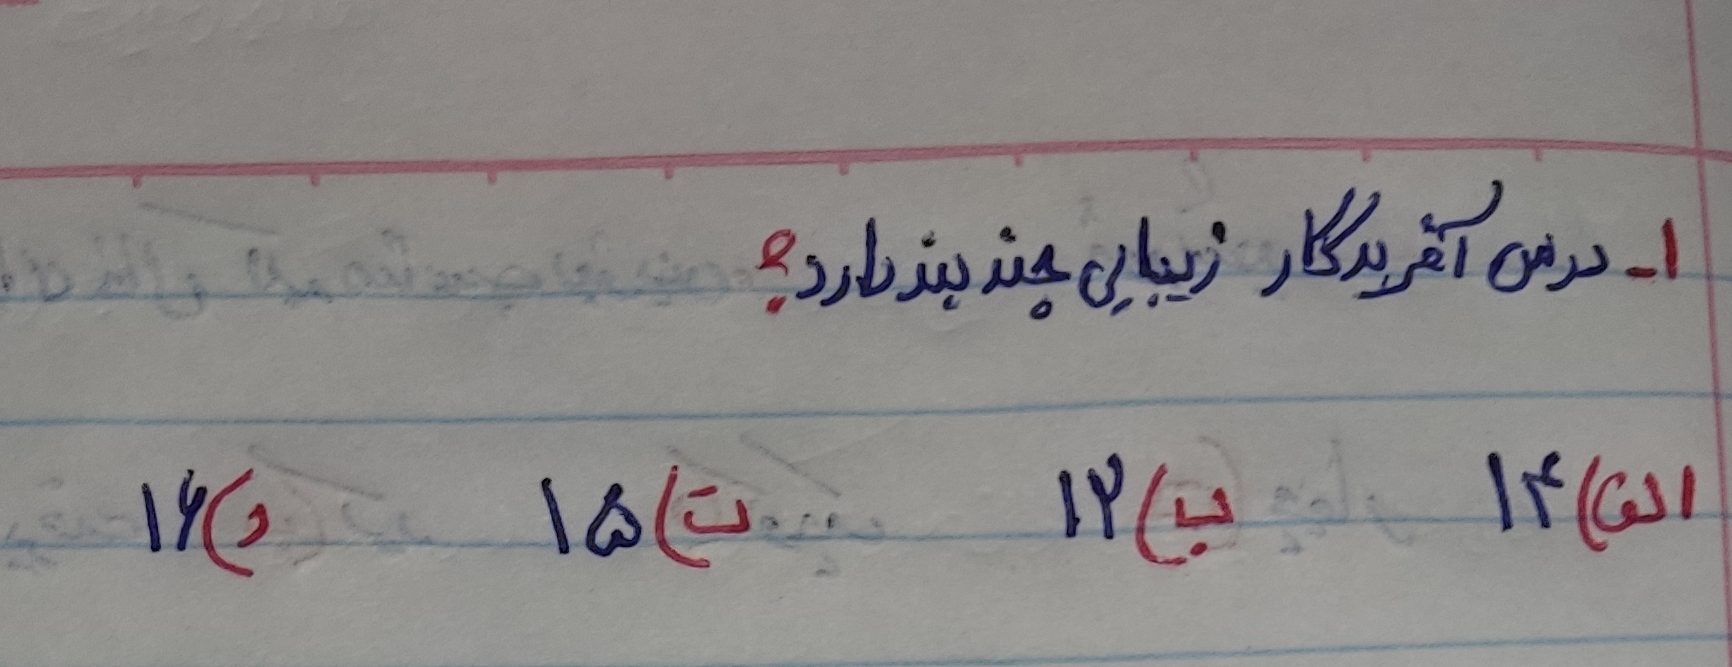 ۱- درس آفریدگار زیبایی چند بند دارد؟
الف) ۱۴ ب) ۱۲ ت) ۱۵ د) ۱۶